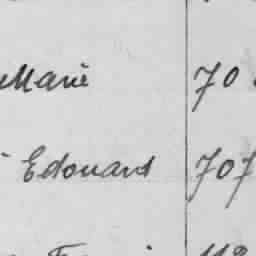 Marie 70
Edouard 707